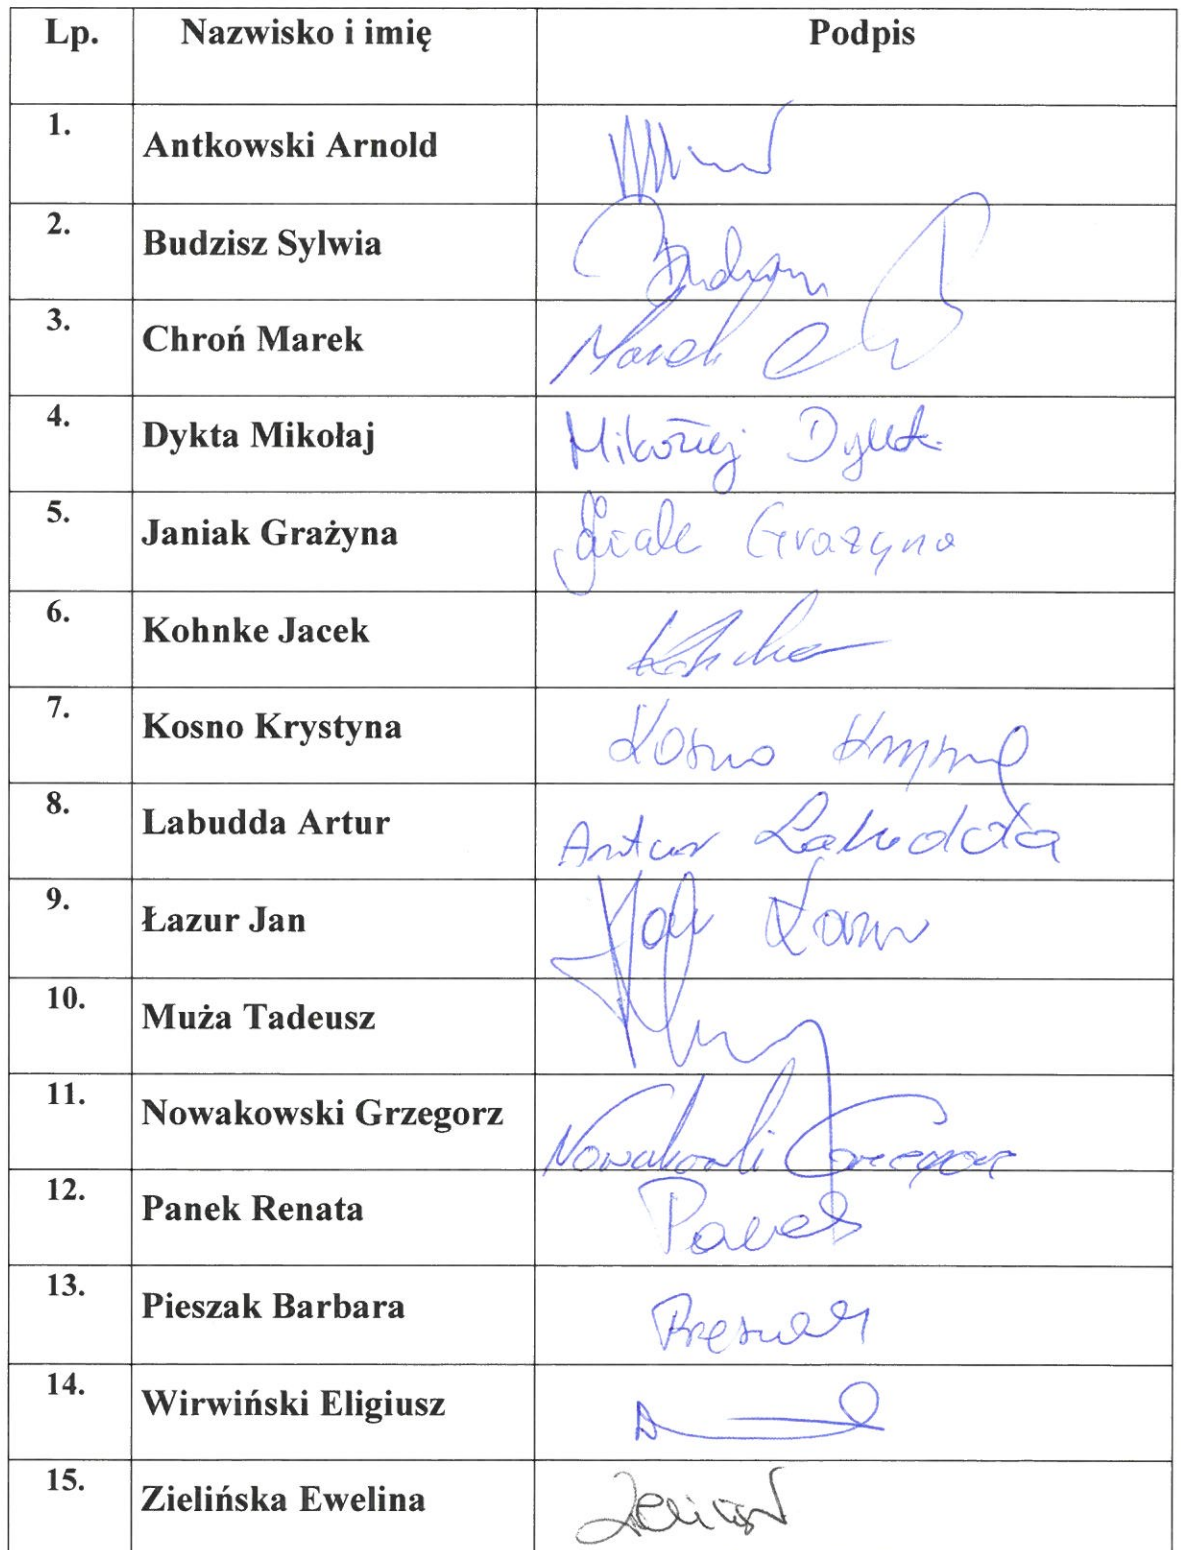 Lp. Nazwisko i imię Podpis
1. Antkowski Arnold
2. Budzisz Sylwia
3. Chroń Marek Marek
4. Dykta Mikołaj Mikołaj Dykta
5. Janiak Grażyna Grażyna
6. Kohnke Jacek
7. Kosno Krystyna Kosno Krystyna
8. Labudda Artur Artur Labudda
9. Łazur Jan Jan Łazur
10. Muża Tadeusz
11. Nowakowski Grzegorz Nowakowski Grzegorz
12. Panek Renata Panek
13. Pieszak Barbara
14. Wirwiński Eligiusz
15. Zielińska Ewelina